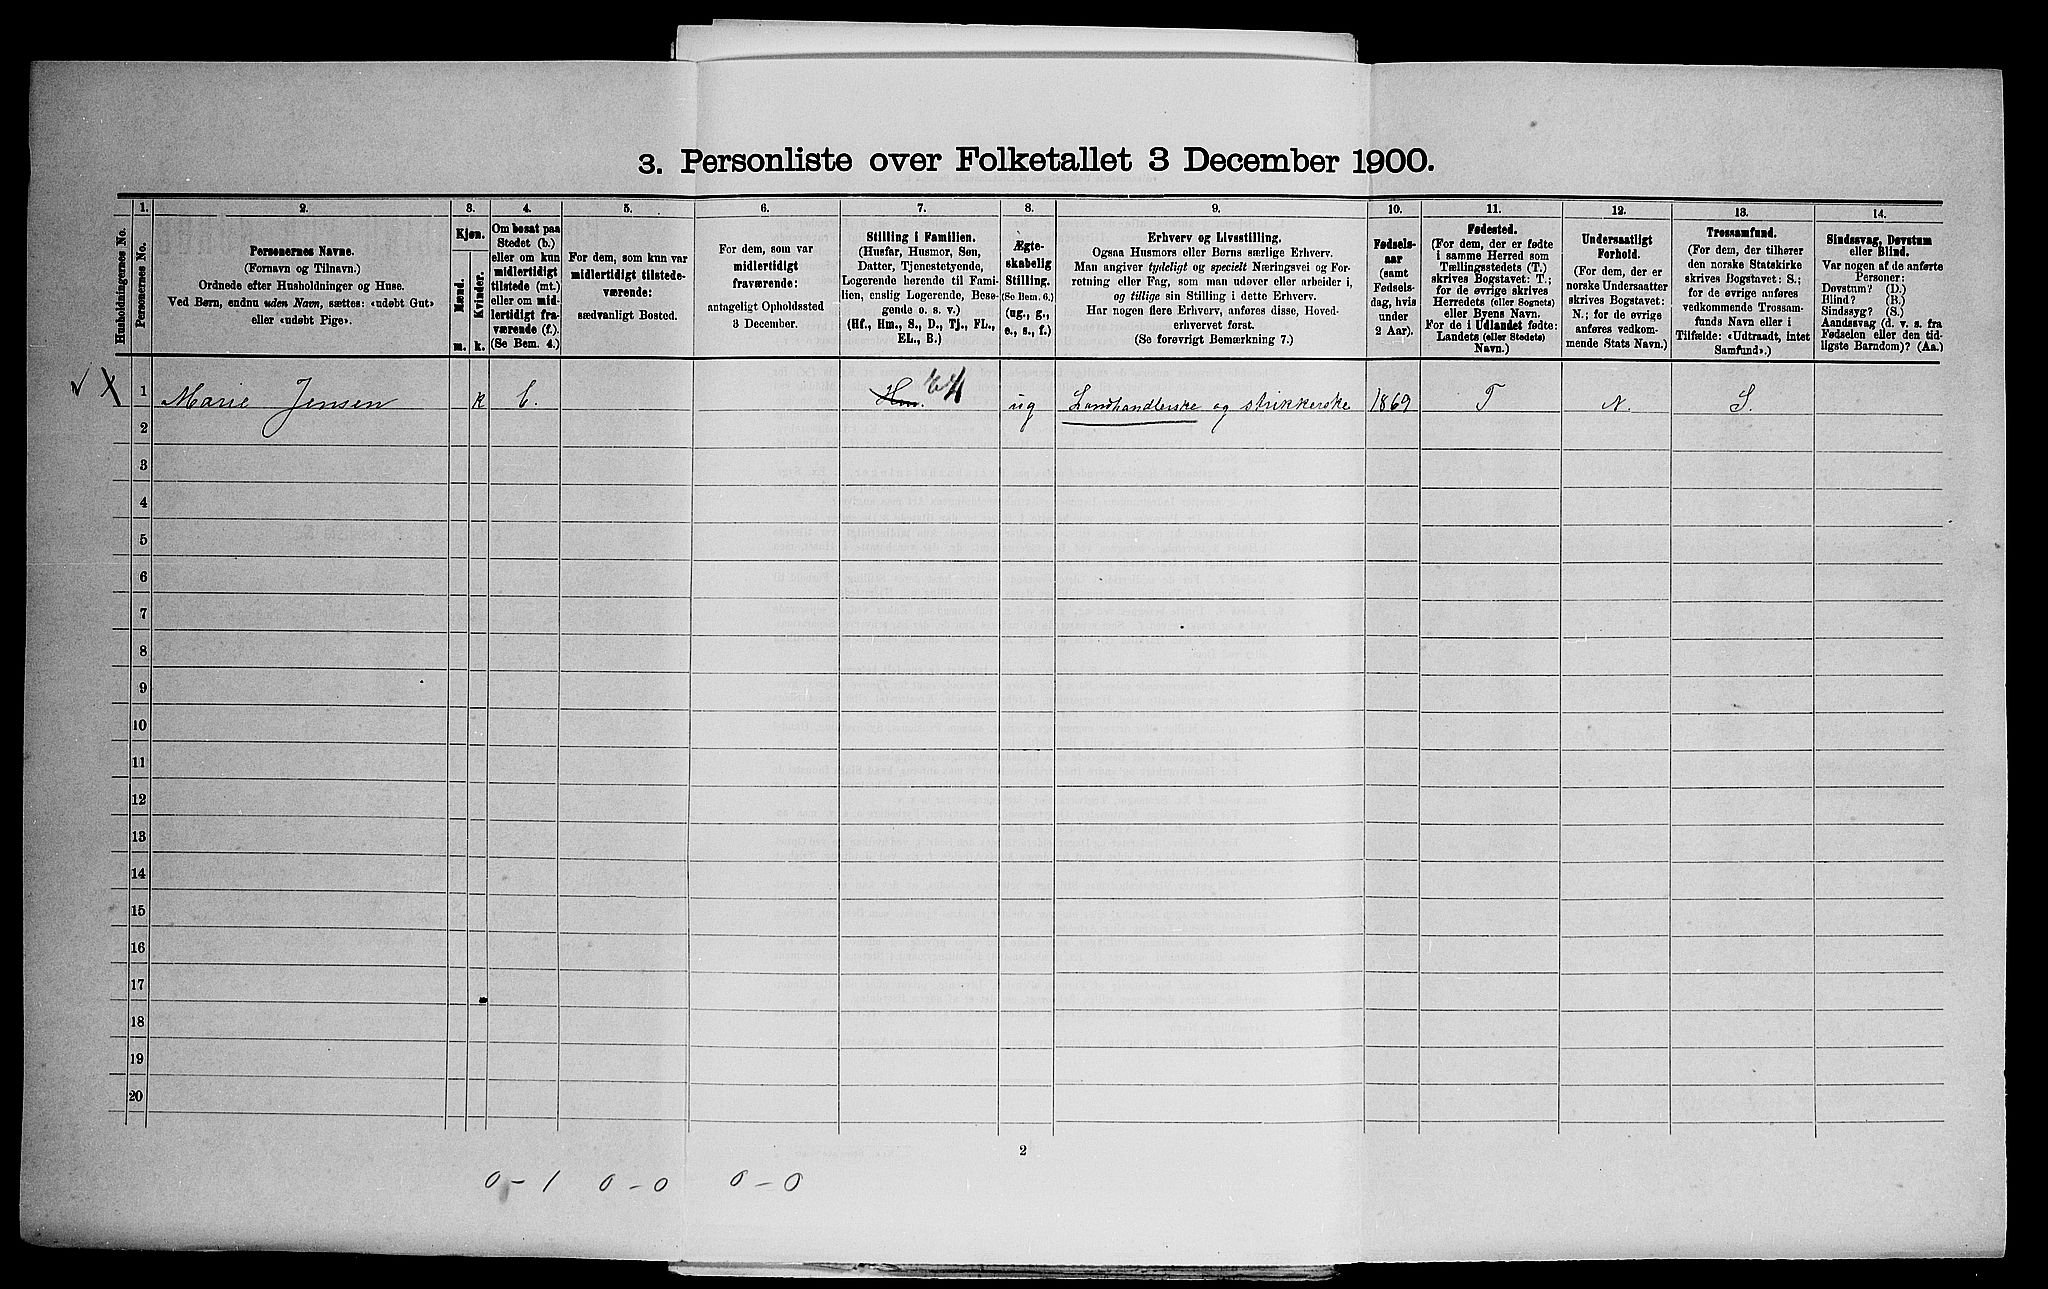 3. Personliste over Folketallet 3 December 1900.
1. 2. 3. 4. 5. 6. 7. 8. 9. 10. 11. 12. 13. 14.
Husholdningernes No.
Personernes No.
Personernes Navne.
(Fornavn og Tilnavn.)
Ordnede efter Husholdninger og Huse.
Ved Børn, endnu uden Navn, sættes: «udøbt Gut»
eller «udøbt Pige».
Kjøn.
Mænd.
Kvinder.
m. k.
Om bosat paa
Stedet (b.)
eller om kun
midlertidigt
tilstede (mt.)
eller om mid-
lertidigt fra-
værende (f.)
(Se Bem. 4.)
For dem, som kun var
midlertidigt tilstede-
værende:
sædvanligt Bosted.
For dem, som var
midlertidigt
fraværende:
antageligt Opholdssted
3 December.
Stilling i Familien.
(Husfar, Husmor, Søn,
Datter, Tjenestetyende,
Logerende hørende til Fami-
lien, enslig Logerende, Besø-
gende o. s. v.)
(Hf., Hm., S., D., Tj., FL.,
EL., B.)
Ægte-
skabelig
Stilling.
(Se Bem. 6.)
(ug., g.,
e., s., f.)
Erhverv og Livsstilling.
Ogsaa Husmors eller Børns særlige Erhverv.
Man angiver tydeligt og specielt Næringsvei og For-
retning eller Fag, som man udøver eller arbeider i,
og tillige sin Stilling i dette Erhverv.
Har nogen flere Erhverv, anføres disse, Hoved-
erhvervet først.
(Se forøvrigt Bemærkning 7.)
Fødsels-
aar
(samt
Fødsels-
dag, hvis
under
2 Aar).
Fødested.
(For dem, der er fødte
i samme Herred som
Tællingsstedets (T.)
skrives Bogstavet: T.;
for de øvrige skrives
Herredets (eller Sognets)
eller Byens Navn.
For de i Udlandet fødte:
Landets (eller Stedets)
Navn.)
Undersaatligt
Forhold.
(For dem, der er
norske Undersaatter
skrives Bogstavet:
N.; for de øvrige
anføres vedkom-
mende Stats Navn.)
Trossamfund.
(For dem, der tilhører
den norske Statskirke
skrives Bogstavet: S.;
for de øvrige anføres
vedkommende Trossam-
funds Navn eller i
Tilfælde: «Udtraadt, intet
Samfund».)
Sindssvag, Døvstum
eller Blind.
Var nogen af de anførte
Personer:
Døvstum? (D.)
Blind? (B.)
Sindssyg? (S.)
Aandssvag (d. v. s. fra
Fødselen eller den tid-
ligste Barndom)? (Aa.)
√ X 1 Marie Jensen k b. Hm. ug Landhandlerske og strikkerske 1869 T N. S.
2
3
4
5
6
7
8
9
10
11
12
13
14
15
16
17
18
19
20
2
0 - 1 0 - 0 0 - 0